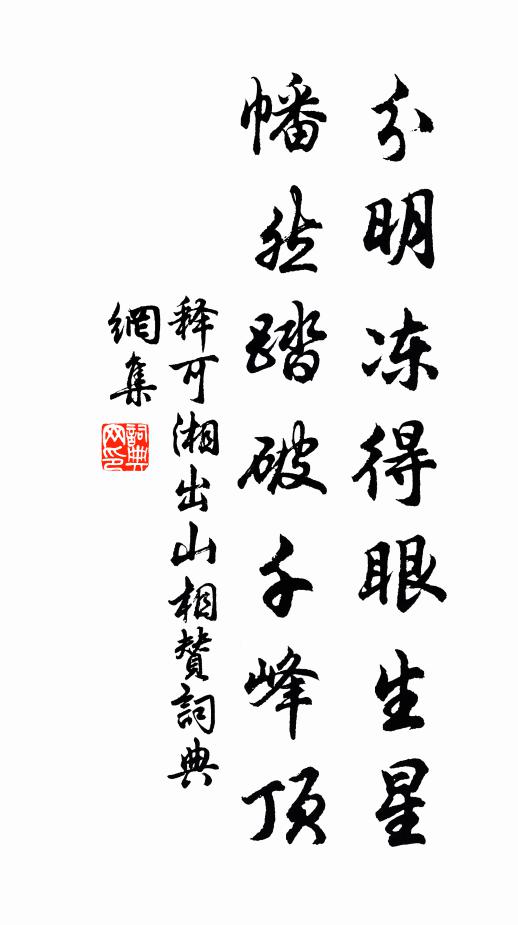 分明冻得眼生星
幡然踏破千峰顶
释可湘出山相赞詞典
網集
詞典
网印